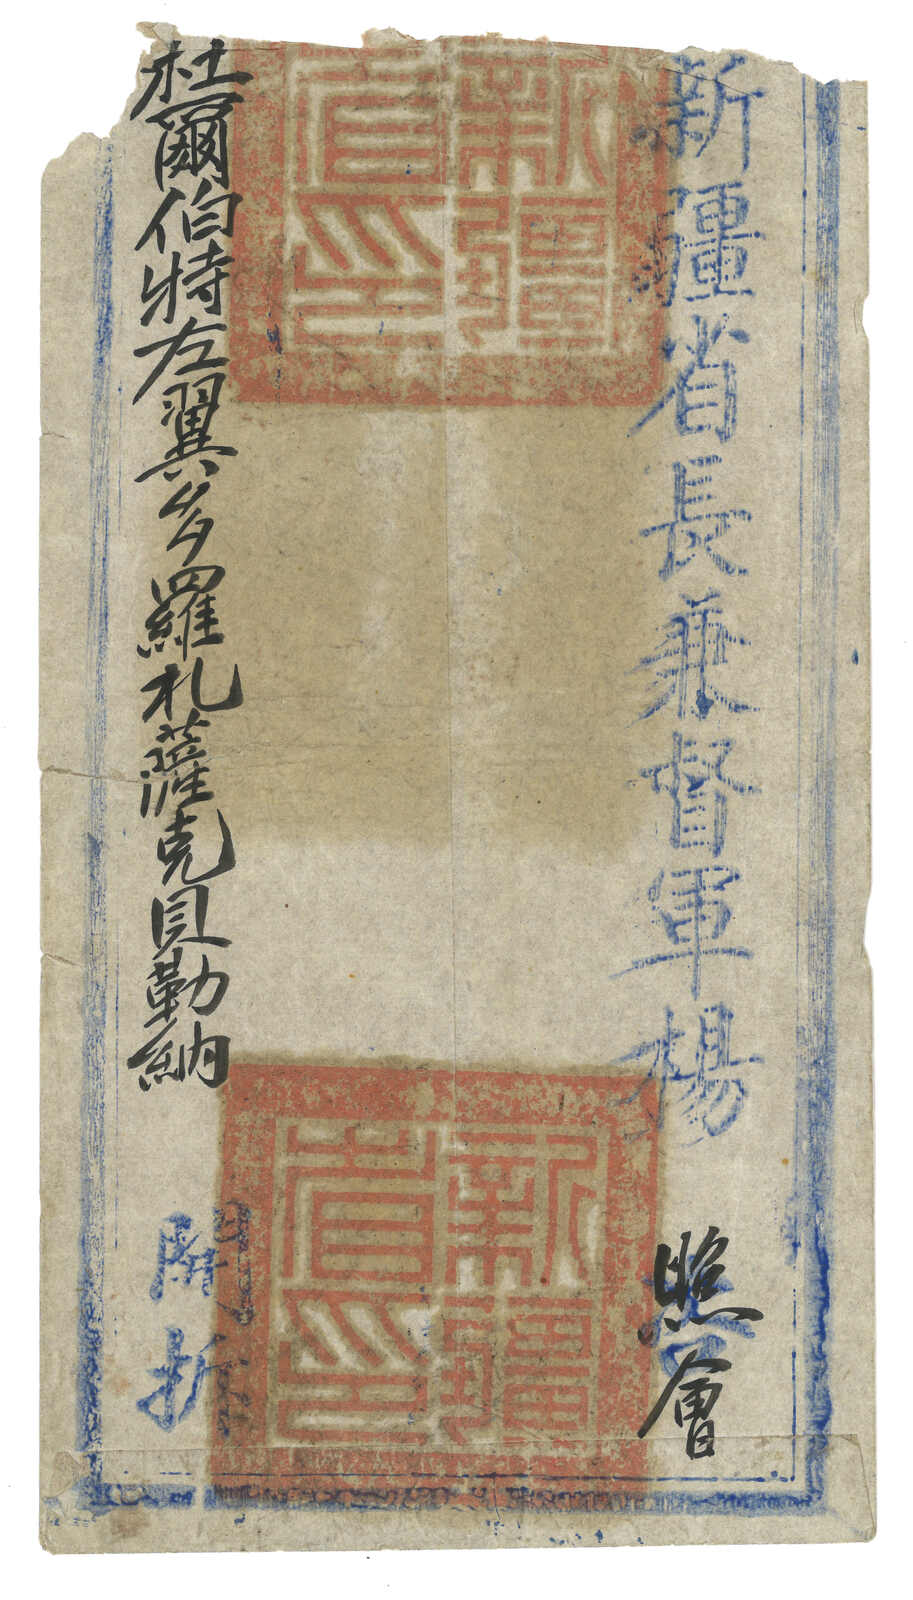 新疆省長兼督軍楊
照會
新疆
省印
新疆
省印
杜爾伯特左翼多羅札薩克貝勒納
開拆